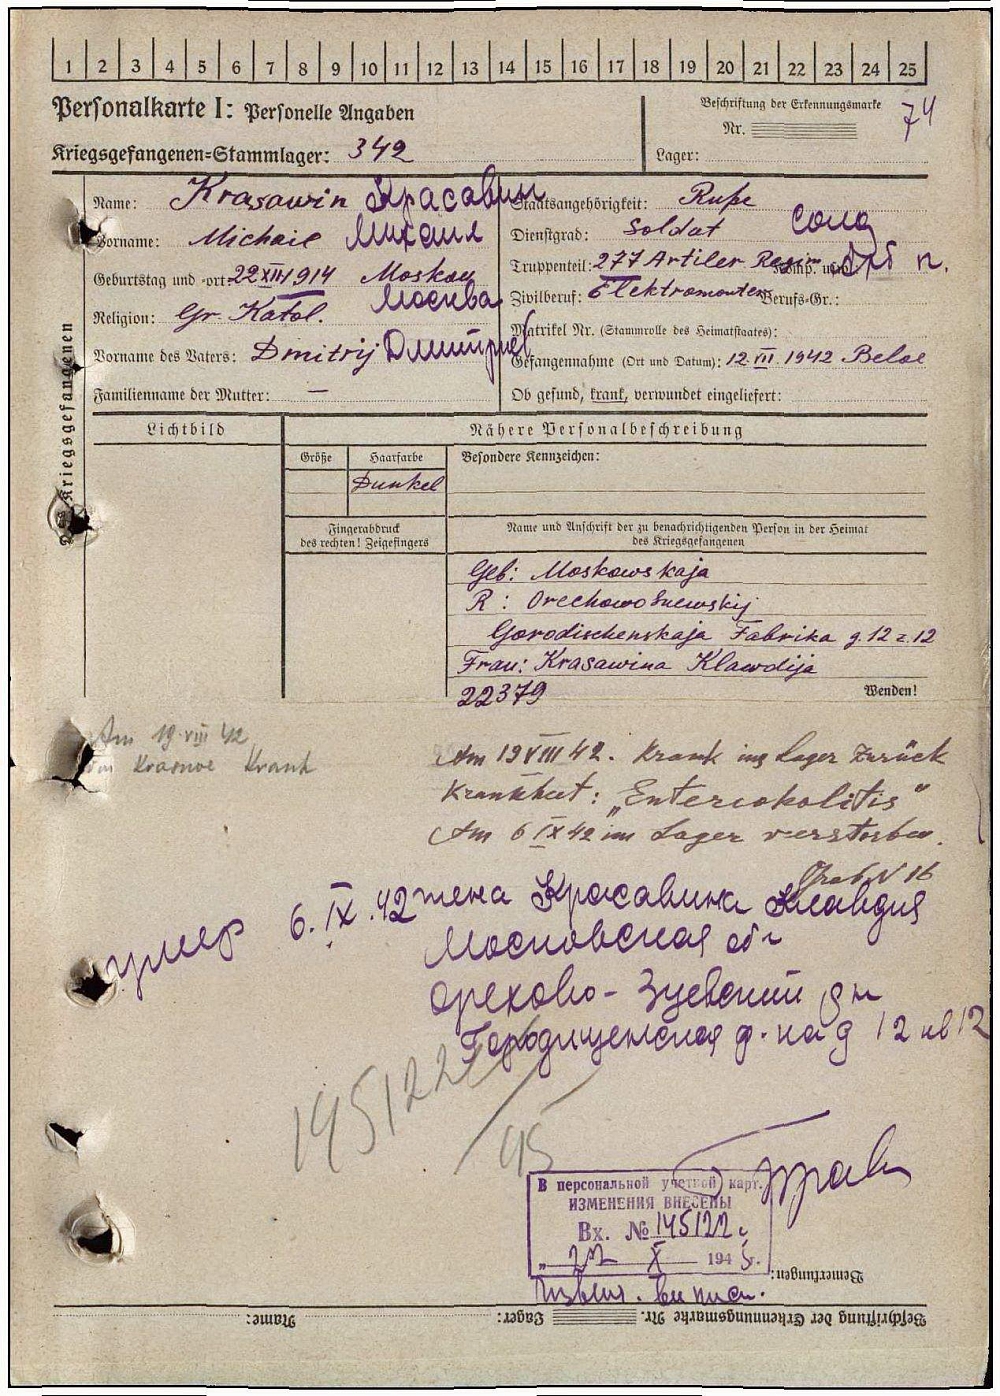 1 2 3 4 5 6 7 8 9 10 11 12 13 14 15 16 17 18 19 20 21 22 23 24 25
Personalkarte I: Personelle Angaben
Kriegsgefangenen-Stammlager: 342
Beschriftung der Erkennungsmarke
74
Nr.
Lager:
Des Kriegsgefangenen
Name: Krasawin Красавин
Vorname: Michail Михаил
Geburtstag und -ort: 22 XII 1914 Moskau
Москва
Religion: Gr. Katol.
Vorname des Vaters: Dmitrij Дмитрий
Familienname der Mutter: —
Staatsangehörigkeit: Ruße
Dienstgrad: Soldat солд
Truppenteil: 277 Artiler Regim Komp. usw. п.
Zivilberuf: Elektromonter Berufs-Gr.:
Matrikel Nr. (Stammrolle des Heimatstaates):
Gefangennahme (Ort und Datum): 12. VII. 1942 Beloe
Ob gesund, krank, verwundet eingeliefert:
Lichtbild
Nähere Personalbeschreibung
Größe
Haarfarbe
Besondere Kennzeichen:
Dunkel
Fingerabdruck
des rechten! Zeigefingers
Name und Anschrift der zu benachrichtigenden Person in der Heimat
des Kriegsgefangenen
Geb: Moskowskaja
R: Orechowo Suewskij
Gorodischenskaja Fabrika g. 12 z. 12
Frau: Krasawina Klawdija
22379
Wenden!
Am 19 VIII 42
im Krasnoe Krank
Am 19 VIII 42. Krank ins Lager zurück
Krankheit: „Enterokolitis"
Am 6 IX 42 im Lager verstorben.
Grab N 16
умер 6. IX. 42 жена Красавина Клавдия
Московская обл
Орехово-Зуевский рн
Городищенская ф-ка д 12 кв 12
145122
45
В персональной учетной карт.
ИЗМЕНЕНИЯ ВНЕСЕНЫ
Вх. № 145122 с
„22 X 1945г.
Bemerkungen:
Beschriftung der Erkennungsmarke Nr. Lager: Name: